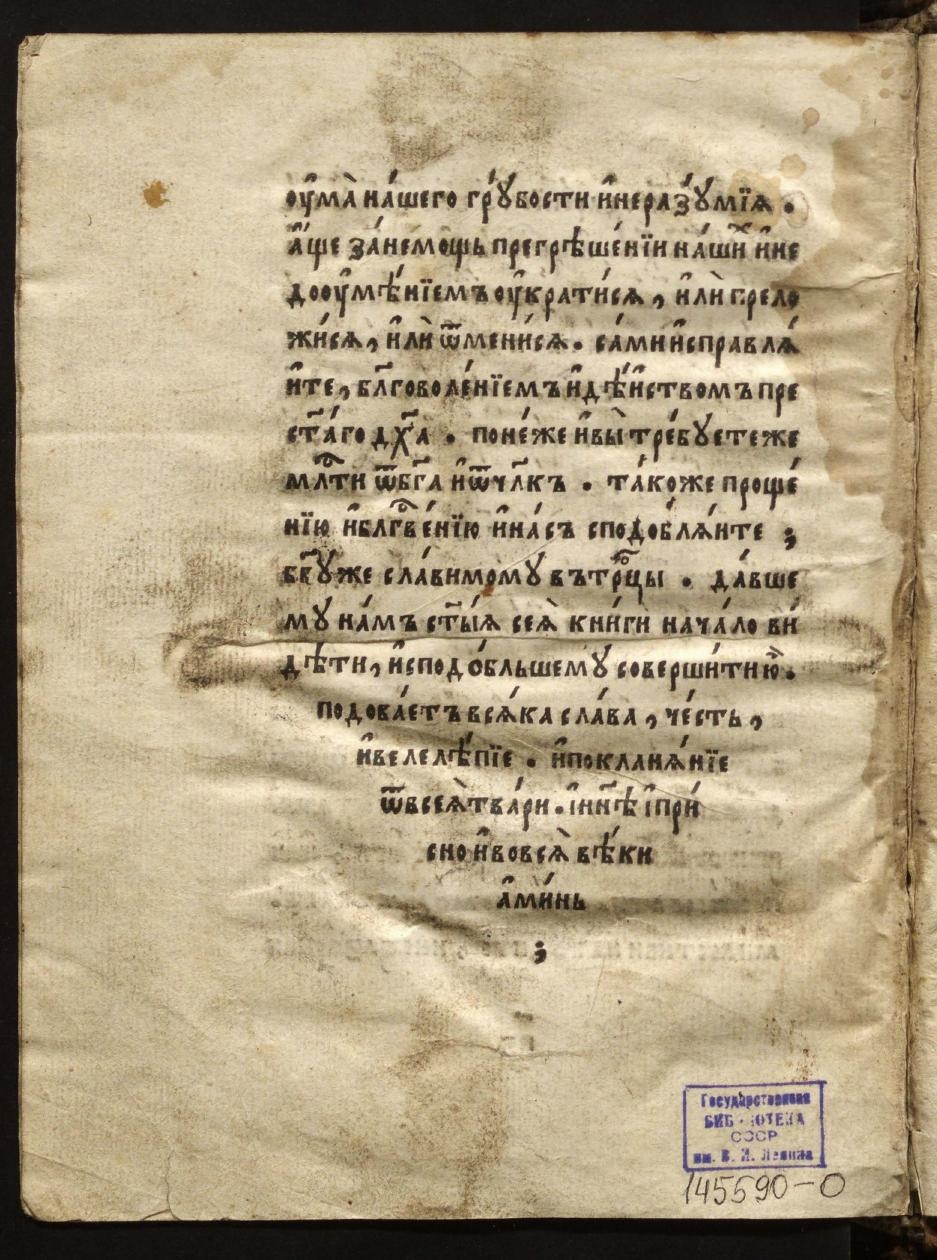 оу҆ма̀ на́шего грꙋ́бости и҆неразꙋ́мїѧ .
а҆́ще за́немощь прегрѣше́нїи на́ши̑х и҆не
доѻу҆мѣ́нїемъ оу҆крати́сѧ , и҆лѝ прело
жи́сѧ , и҆лѝ ѿмени́сѧ . са́ми и҆справлѧ́
и҆те , бл҃говоле́нїемъ и҆дѣ́йствомъ пре
ст҃а́го дх҃а . поне́же и҆вы̀ тре́бꙋете же
мл҃ти ѿбг҃а и҆ѿчл҃къ . та́коже проще́
нїю и҆блгⷭ҇ве́нїю и҆на́съ сподоблѧ́ите ;
бг҃ꙋже сла́вимомꙋ въ трⷪ҇цы . да́вше
мꙋ на́мъ ст҃ы́ѧ сеѧ̀ кни́ги нача́ло ви́
дѣти , и҆сподо́бльшемꙋ соверши́ти ю҆̀ .
подоба́етъ всѧ́ка сла́ва , че́сть ,
и҆велелѣ́пїе . и҆покланѧ́нїе
ѿвсеѧ̀ тва́ри . і҆нн҃ѣ і҆при́
сно и҆вовсѧ̀ вѣ́ки
а҆ми́нь
;
Государственная
БИБЛИОТЕКА
СССР
им. В. И. Ленина
145590-О